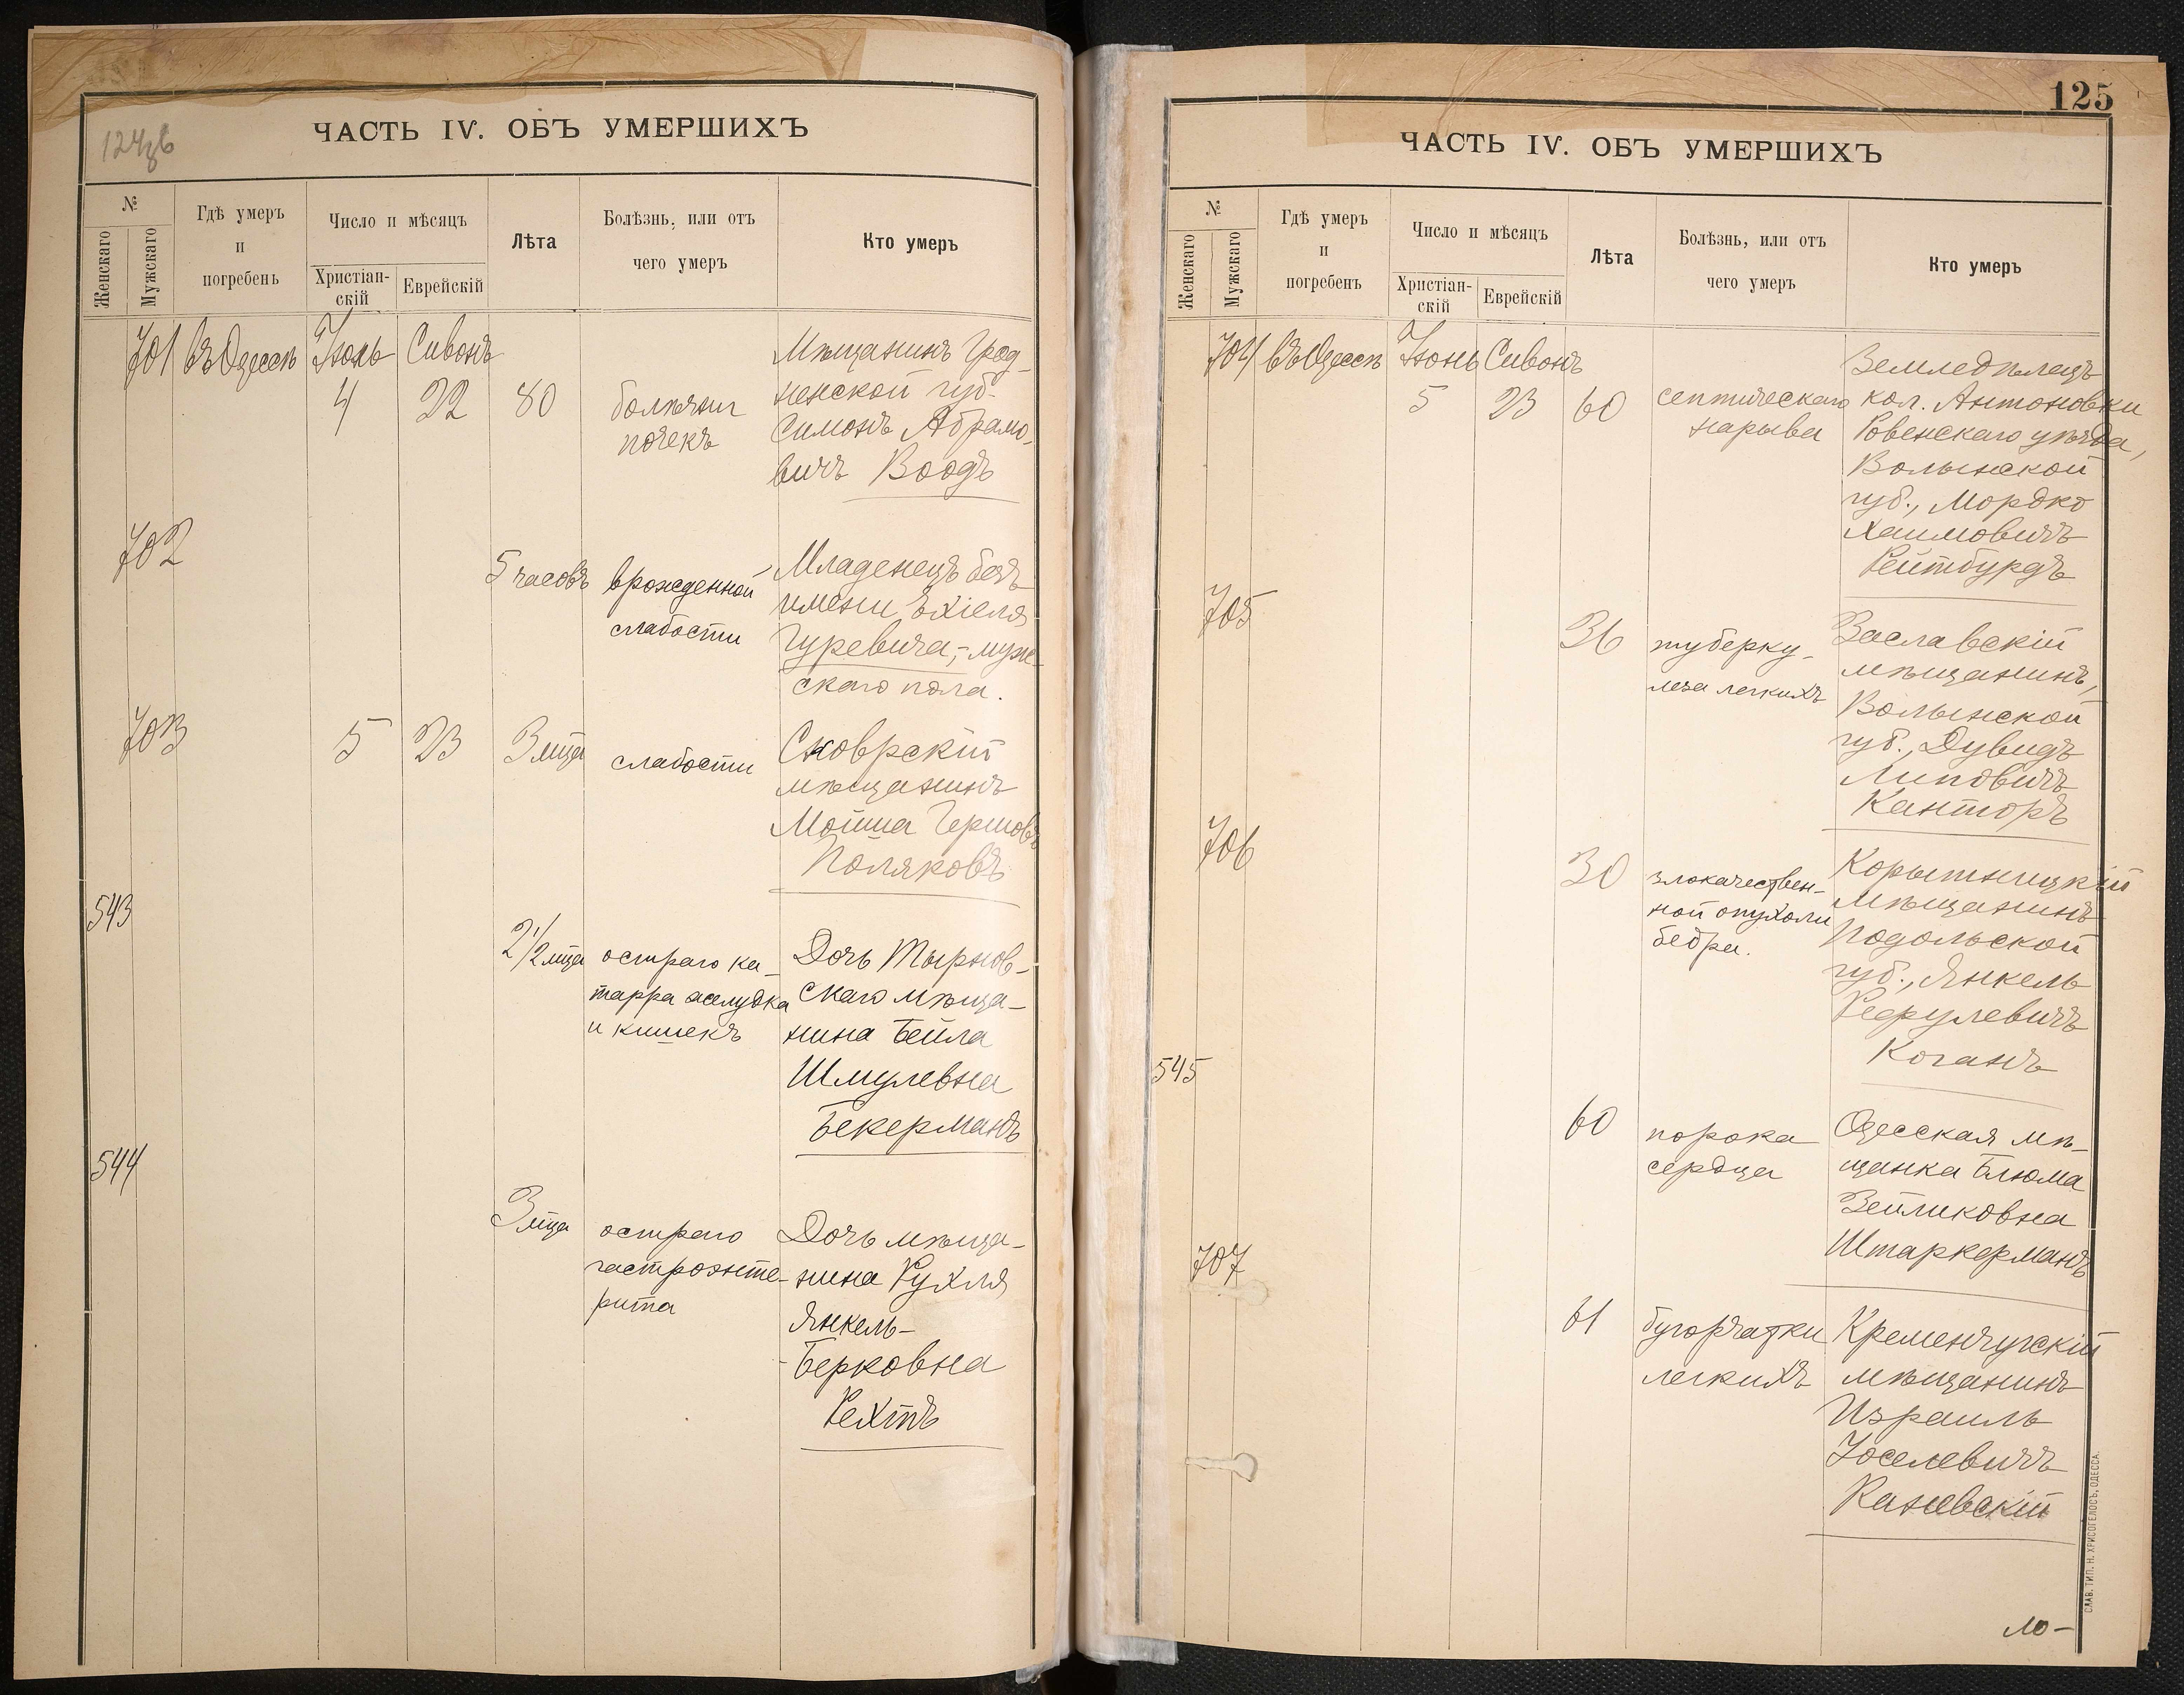 ЧАСТЬ IV. ОБЪ УМЕРШИХЪ
№
Женскаго
Мужскаго
Гдѣ умеръ
и
погребенъ
Число и мѣсяцъ
Христіан-
скій
Еврейскій
Лѣта
Болѣзнь, или отъ
чего умеръ
Кто умеръ
701 въ Одессѣ Іюнь Сивонъ
4 22 80
болѣзни
почекъ
Мѣщанинъ Грод-
ненской губ.
Симонъ Абрамо-
вичъ Воодъ
702
5 часовъ
врожденной
слабости
Младенецъ безъ
имени Ѣхіеля
Гуревича, - муж-
скаго пола.
703
5 23 3 мца
слабости
Сквирскій
мѣщанинъ
Мойша Гершовъ
Поляковъ
543
2 1/2 мца
остраго ка-
тарра желудка
и кишекъ
Дочь Тырнов-
скаго мѣща-
нина Бейла
Шмулевна
Бекерманъ
544
3 мца
остраго
гастроэнте-
рита
Дочь мѣща-
нина Рухля
Янкель-
-Берковна
Рехтъ
125
ЧАСТЬ IV. ОБЪ УМЕРШИХЪ
№
Женскаго
Мужскаго
Гдѣ умеръ
и
погребенъ
Число и мѣсяцъ
Христіан-
скій
Еврейскій
Лѣта
Болѣзнь, или отъ
чего умеръ
Кто умеръ
704 въ Одессѣ Іюнь Сивонъ
5 23 60
септическаго
нарыва
Земледѣлецъ
кол. Антоновки
Ровенскаго уѣзда,
Волынской
губ., Мордко
Хаимовичъ
Рейтбурдъ
705
36
туберку-
леза легкихъ
Заславскій
мѣщанинъ,
Волынской
губ., Дувидъ
Липовичъ
Канторъ
706
30
злокачествен-
ной опухоли
бедра.
Корытницкій
мѣщанинъ
Подольской
губ., Янкель
Рефулевичъ
Коганъ
545
60
порока
сердца
Одесская мѣ-
щанка Блюма
Зейликовна
Штаркерманъ
707
61
бугорчатки
легкихъ
Кременчугскій
мѣщанинъ
Израиль
Іоселевичъ
Каневскій
СЛАВ. ТИП. Н. ХРИСОГЕЛОСЪ, ОДЕССА.